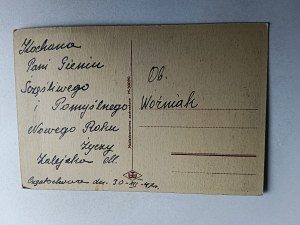 Kochana
Pani Pieniu
Szczęśliwego
i Pomyślnego
Nowego Roku
Życzy
Zalejska M.
Częstochowa dn. 30-XII-47r.
Ob.
Woźniak